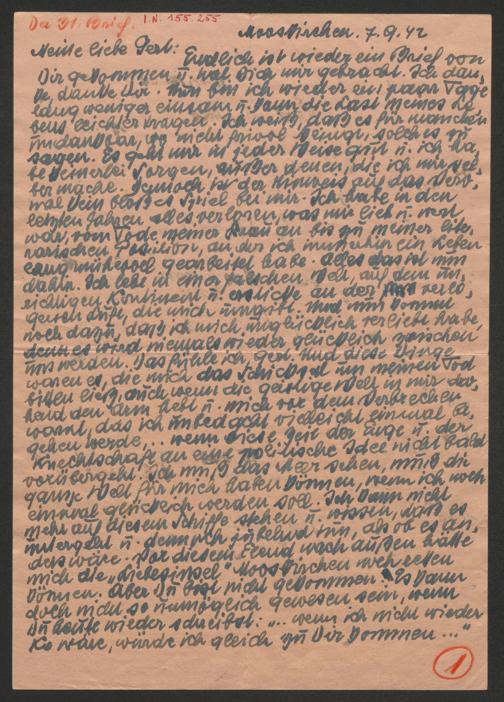 Der 31. Brief. I.N. 155.255
Mooskirchen. 7.9.42
Meine liebe Gert: Endlich ist wieder ein Brief von
Dir gekommen u. hat Dich mir gebracht. Ich dan-
ke, danke Dir. Nun bin ich wieder ein paar Tage
lang weniger einsam u. kann die Last meines Le-
bens leichter tragen. Ich weiß, daß es für manchen
undankbar, wo nicht frivol klingt, solches zu
sagen. Es geht mir in jeder Weise gut u. ich ha-
be keinerlei Sorgen, außer denen, die ich mir sel-
ber mache. Dennoch ist der Hinweis auf das
kein bloßes Spiel bei mir. Ich habe in den
letzten Jahren alles verloren, was mir lieb u. wert
war, vom Tode meiner Frau an bis zu meiner lite-
rarischen Position, an der ich immerhin ein Leben
lang mühevoll gearbeitet habe. Alles das ist nun
dahin. Ich lebe in einer falschen Welt, auf dem un-
richtigen Kontinent u. ersticke an der verlo-
genen Luft, die mich umgibt. Und nun kommt
noch dazu, daß ich mich unglücklich verliebt habe,
denn es wird niemals wieder glücklich zwischen
uns werden. Das fühle ich, Gert. Und diese Dinge
waren es, die mich das Schicksal um meinen Tod
bitten ließ, auch wenn die geistige Welt in mir dro-
hend den Arm hebt u. mich vor dem Verbrechen
warnt, das ich unbedacht vielleicht einmal be-
gehen werde, .. wenn diese Zeit der Lüge u. der
Knechtschaft an eine politische Idee nicht bald
vorübergeht. Ich muß das Meer sehen, muß die
ganze Welt für mich haben können, wenn ich noch
einmal glücklich werden soll. Ich kann nicht
mehr auf diesem Schiffe stehen u. wissen, daß es
untergeht u. dennoch jubelnd tun, als ob es an-
ders wäre. Vor diesem Elend nach außen hätte
mich die „Liebesinsel" Mooskirchen noch retten
können. Aber Du bist nicht gekommen. Es kann
doch nicht so unmöglich gewesen sein, wenn
Du heute wieder schreibst: „.. wenn ich nicht wieder
k.o. wäre, würde ich gleich zu Dir kommen ..."
1